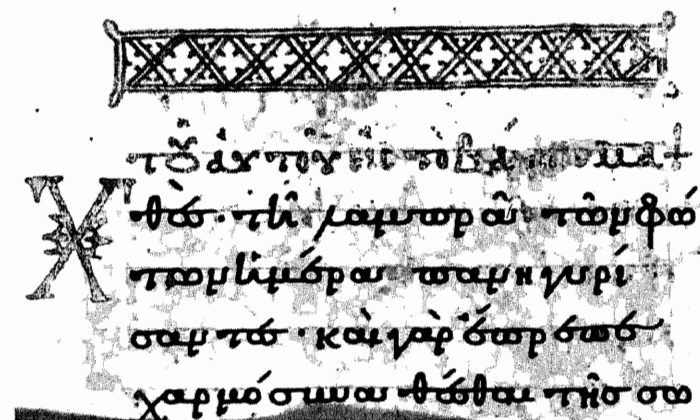 τοῦ αὐτοῦ εἰς τὸ βάπτισμα +
Χθὲς· τῆι λαμπρᾶι τῶν φώ
των ἡμέραι πανηγυρί
σαντες· καὶ γὰρ ἔπρεπε
χαρμόσυνα θέσθαι τῆς σω